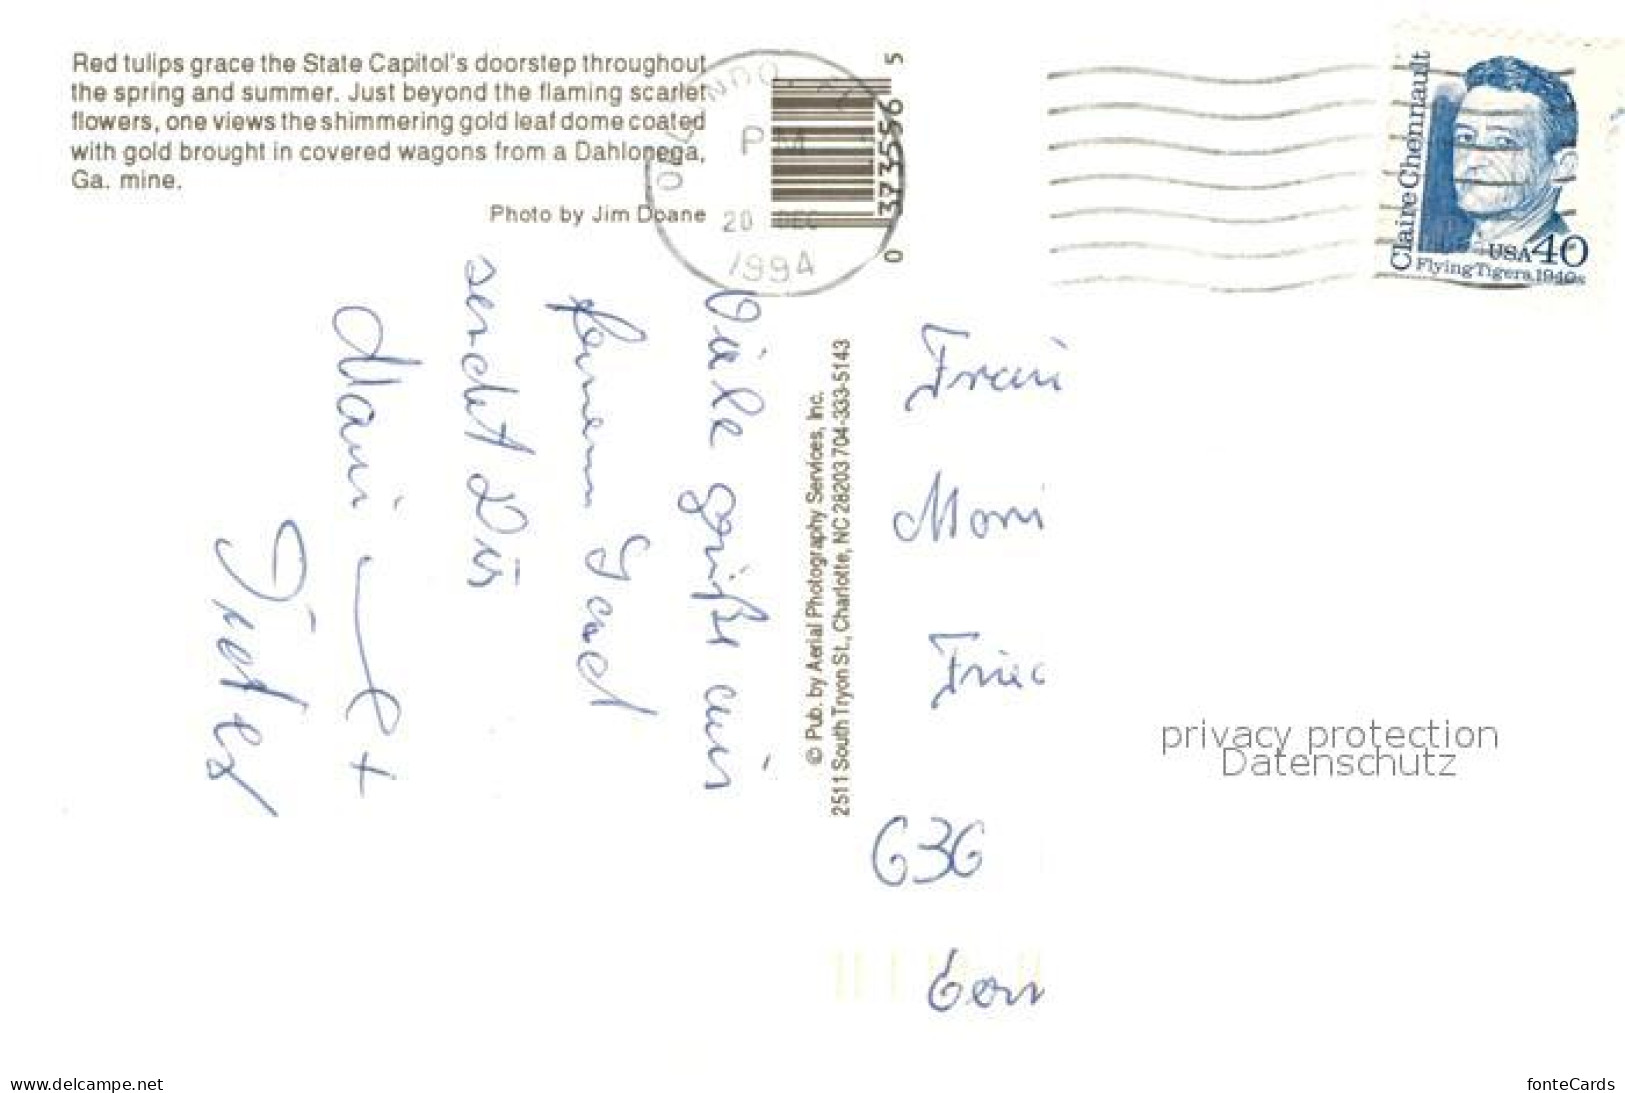 Red tulips grace the State Capitol's doorstep throughout
the spring and summer. Just beyond the flaming scarlet
flowers, one views the shimmering gold leaf dome coated
with gold brought in covered wagons from a Dahlonega,
Ga. mine.
Photo by Jim Doane
PM
20 DEC
1994
5
373556
0
Claire Chennault
USA 40
Flying Tigers, 1940s
Viele Grüße aus
fernem Land
sendet Dir
Mami +
Dieter
© Pub. by Aerial Photography Services, Inc.
2511 South Tryon St., Charlotte, NC 28203 704-333-5143
Frau
636
privacy protection
Datenschutz
www.delcampe.net
fonteCards